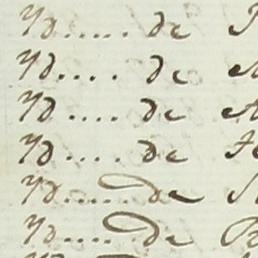 Yd..... de
Yd.... de
Yd.... de
Yd.... de
Yd.... de
Yd.... de